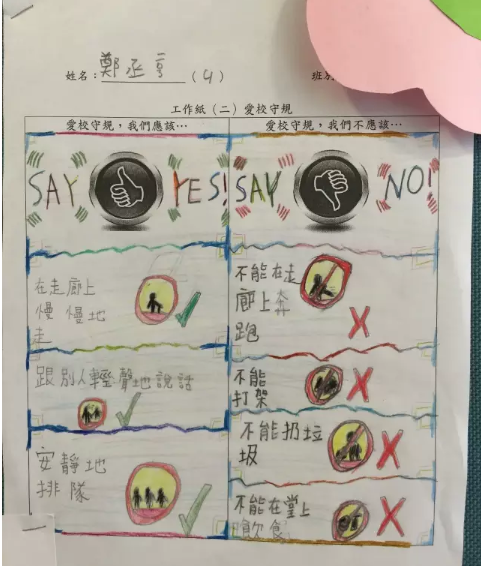 姓名：鄭丞亨（4）
班別
工作紙（二）愛校守規
愛校守規，我們應該…
愛校守規，我們不應該…
SAY YES!
SAY NO!
在走廊上
慢慢地
走
跟別人輕聲地說話
安靜地
排隊
不能在走
廊上奔
跑
不能
打架
不能扔垃
圾
不能在堂上
飲食